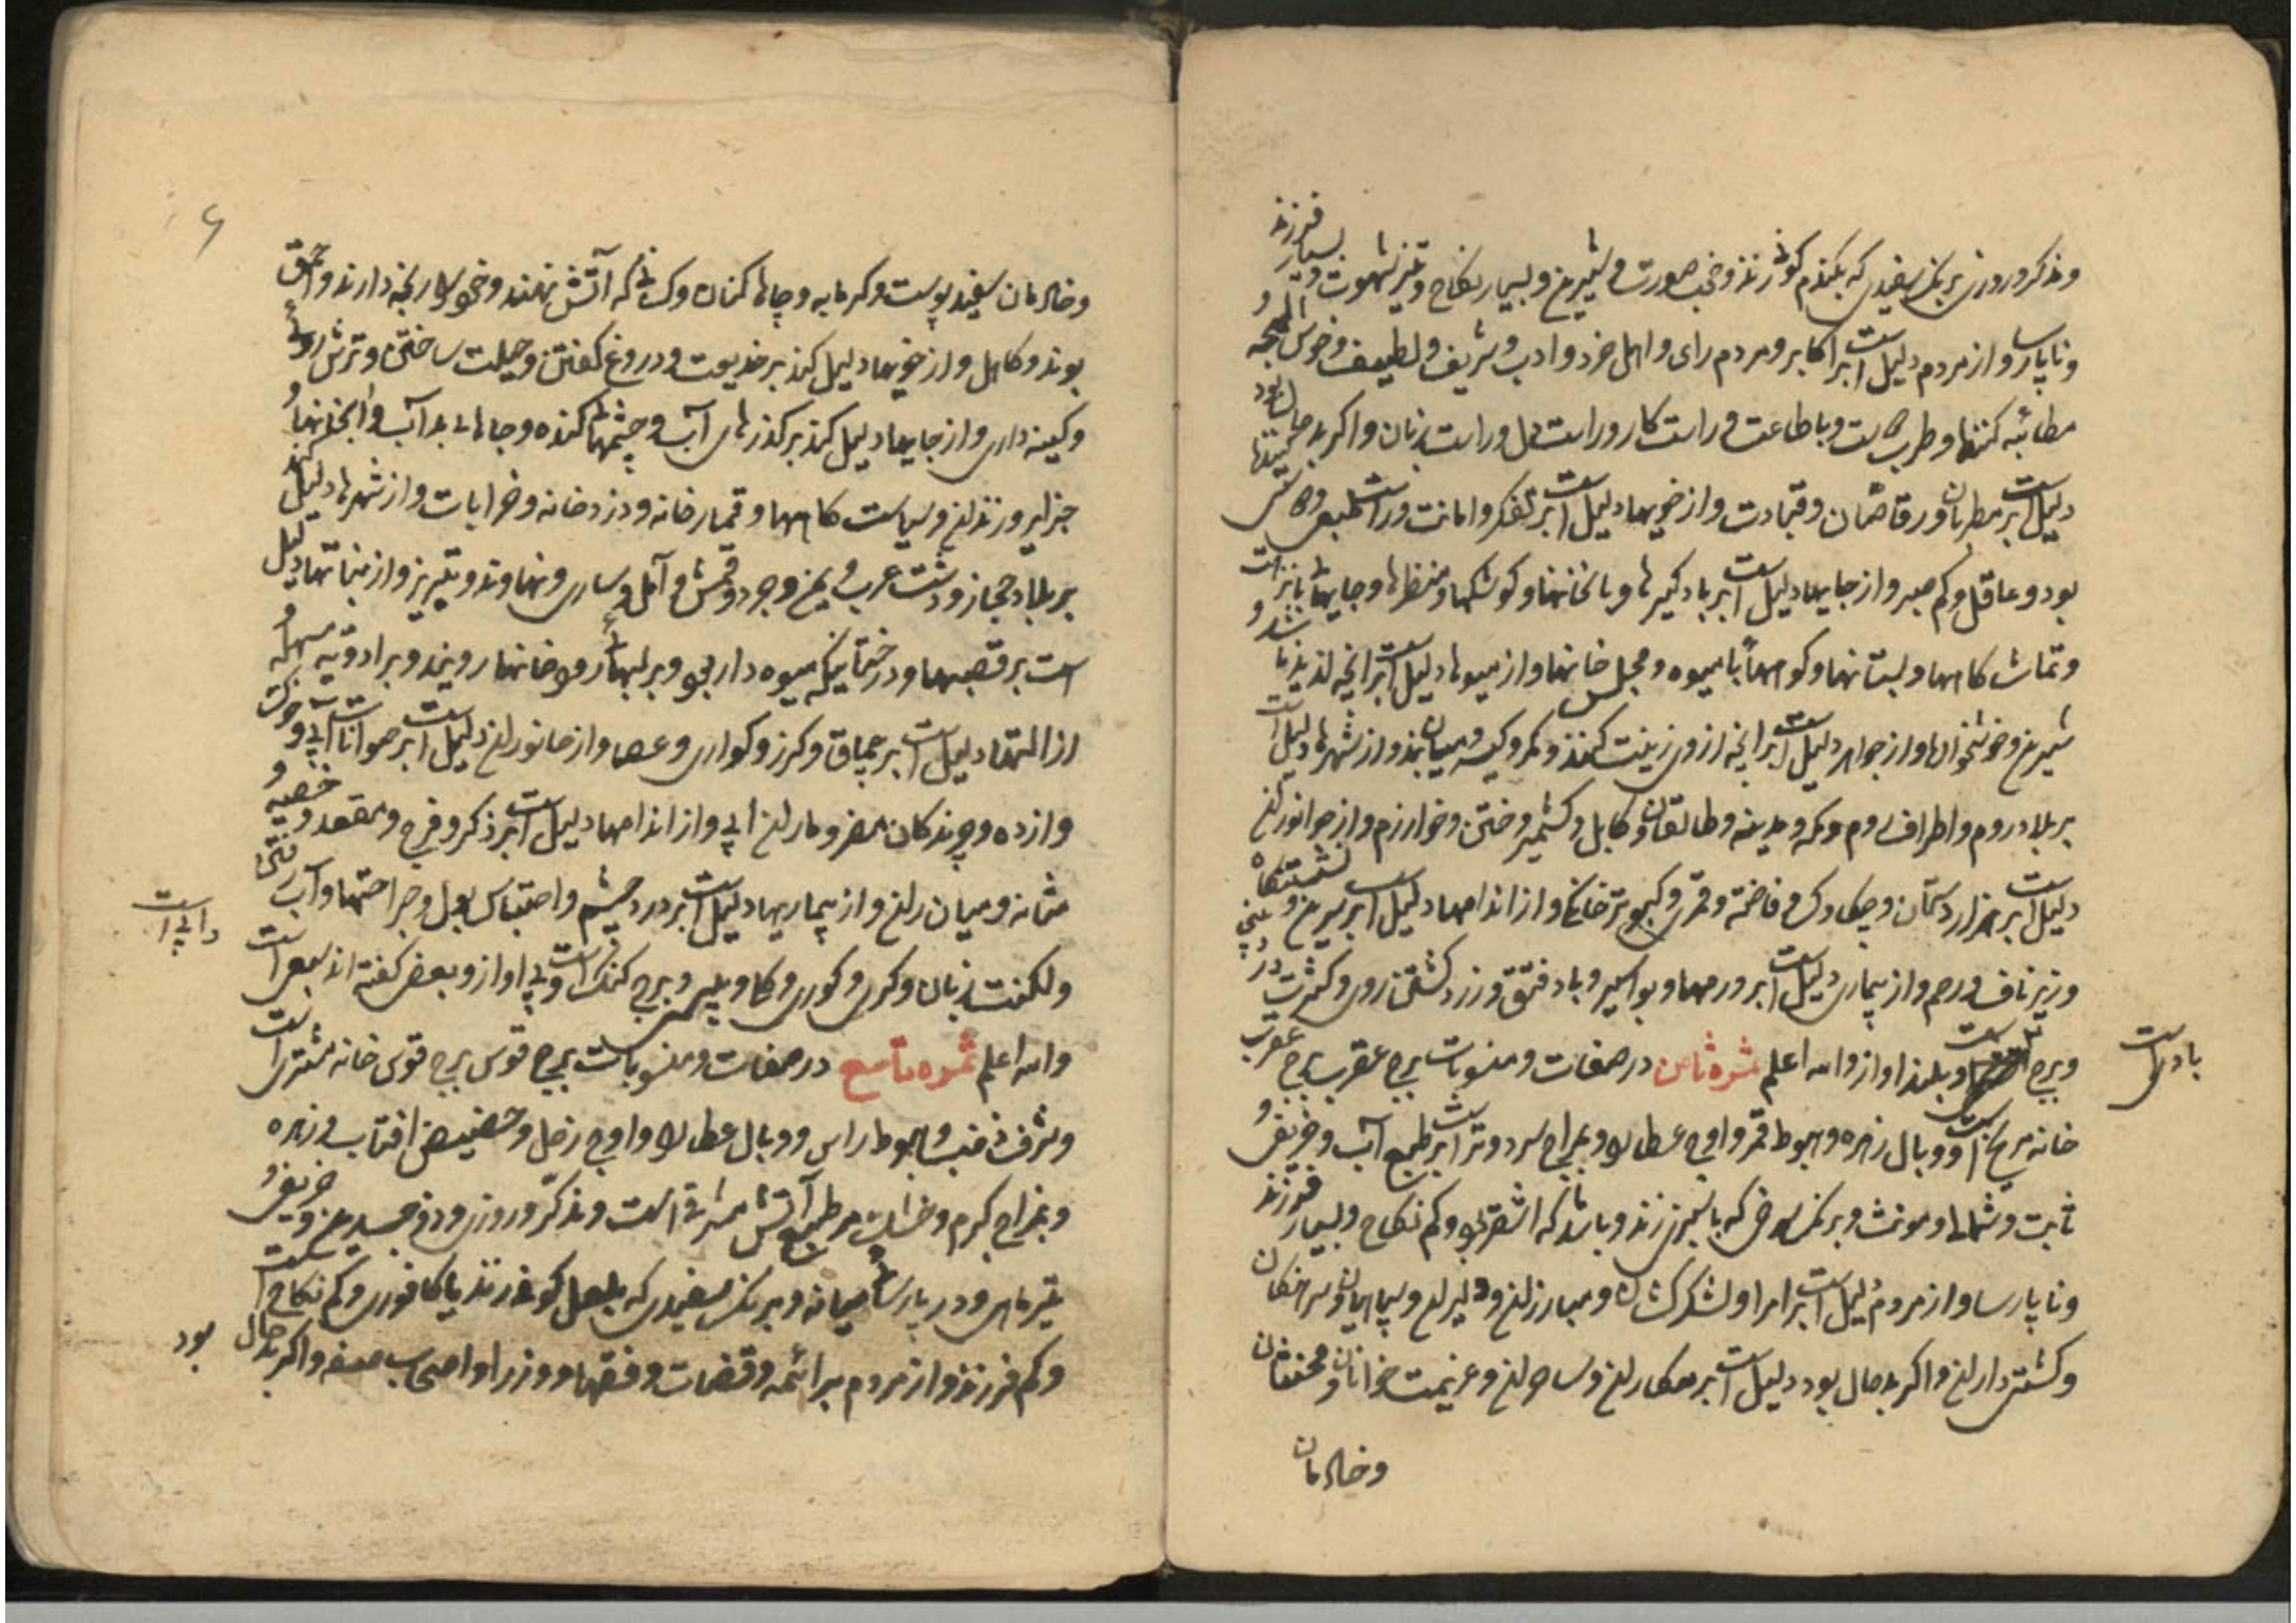 ومذکر و روزی برنگ سفیدی که بگندم کون زند و خوب صورت و شیرین و بسیار نکاح و تیز شهوت و بسیار فرزند
و ناپارسا و از مردم دلیل است بر اکابر و مردم رای و اهل خرد و ادب و شریف و لطیف و خوش لهجه و
مطائبه کنندها و طرب و باطاعت و راست کار و راست دل و راست زبان و اگر بد حال بود
دلیل است بر مطربان و رقاصان و قیادت و از خویها دلیل است بر تفکر و امانت و راست طبعی و
بود و عاقل و کم صبر و از جایها دلیل است بر بادگیرها و بالخانها و کوشکها و منظرها و جایهای
و تماشاکاهها و بستانها و کوهها با میوه و مجلس خانها و از میوها دلیل است بر انچه لذیذ باشد و
شیرین و خوشخوان و از جواهر دلیل است بر انچه از وی زینت کنند و کمر و کیسه و همیان بند و از شهرها دلیل است
بر بلاد روم و اطراف روم و مکه و مدینه و طالقان و کابل و کشمیر و ختن و خوارزم و از جانوران
دلیل است بر هزاردستان و چکاوک و فاخته و قمری و کبوتر خانکی و از اندامها دلیل است بر سرین و نشستگاه
و زیر ناف و رحم و از بیماری دلیل است بر ورمها و بواسیر و باد فتق و زرد کشتن روی و کثرت
و برج بلند اواز والله اعلم ثمره ثامن در صفات و منسوبات برج عقرب برج عقرب
بادی است
خانه مریخ است و وبال زهره و هبوط قمر و اوج عطارد و بمزاج سرد و تر است بر طبع آب و خریفی و
ثابت و شمالی و مونث و برنک سرخی که بسبزی زند و باشد که اشقر بود و کم نکاح و بسیار فرزند
و ناپارسا و از مردم دلیل است بر امرا و لشکرکشان و مبارزان و دلیران و سپاهیان و سرهنکان
و کشتی داران و اگر بد حال بود دلیل است بر مکاران و ساحران و عزیمت خوانان و مخنثان
و خادمان
۶
و خادمان سفید پوست و کرمابه و چاه کنان و کسانی که آتش نهند و خوی رنجه دارند و احمق
بوند و کاهل و از خویها دلیل کند بر خدیعت و دروغ گفتن و حیلت ساختن و ترش روئی
و کینه داری و از جایها دلیل کند بر گذرهای آب و چشمهای گنده و جاهای بد آب و انجا نهند
جزایر و زندان و سیاست کاهها و قمارخانه و دزدخانه و خرابات و از شهرها دلیل کند
بر بلاد حجاز و دشت عرب و یمن و آمل و ساری و نهاوند و تبریز و از نباتها دلیل
است بر قصبها و درختانیکه میوه دار بود و بر لبهای رودخانها رویند و بر ادویه مسهله و
از التها دلیل است بر چماق و کرز و عصا و از جانوران دلیل است بر حیوانات آبی و خوک
و از ده و چرندکان مضر و ماران آبی و از اندامها دلیل است بر ذکر و فرج و مقعد و خصیه و
مثانه و میان ران و از بیماریها دلیل است بر درد چشم و احتباس بول و جراحتها و آب ریختن
و لکنت زبان و کری و کوری و برج کنک است و بی اواز و بعضی گفته اند سبعی است
دابی است
والله اعلم ثمره تاسع در صفات و منسوبات برج قوس برج قوس خانه مشتری است
و شرف ذنب و هبوط راس و وبال عطارد و اوج زحل و حضیض افتاب و زهره
و بمزاج گرم و خشک بر طبع آتش مشرقی است و مذکر و روزی و ذو جسدین و خریفی و
تیر ماهی و در پارسائی میانه و برنک سفیدی که بلعل کون زند یا کافوری و کم نکاح است
و کم فرزند و از مردم بر ائمه و قضات و فقها و وزرا و اصحاب صفه و اگر بد حال بود